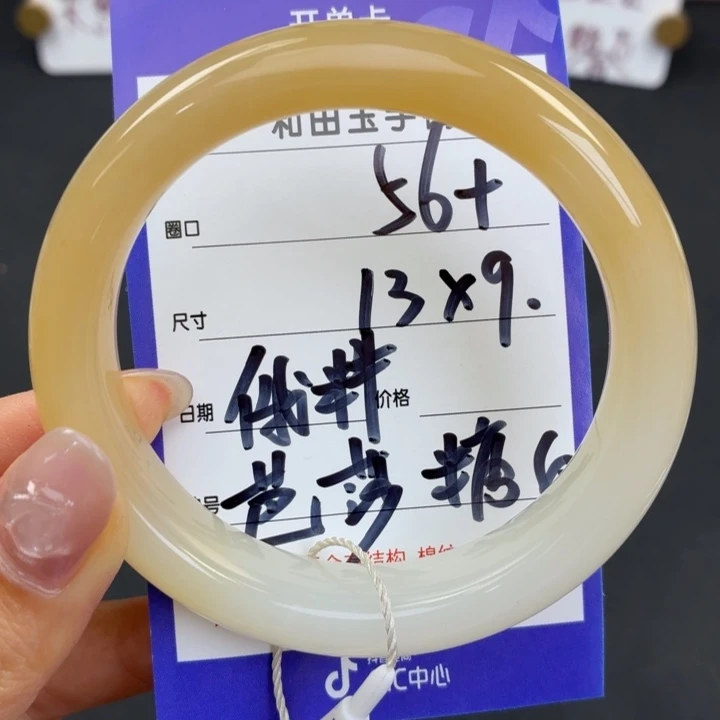 开单卡
和田玉手
圈口 56+
尺寸 13×9.
日期 俄料 价格
号 芭莎 糖白
结构 棉
C中心